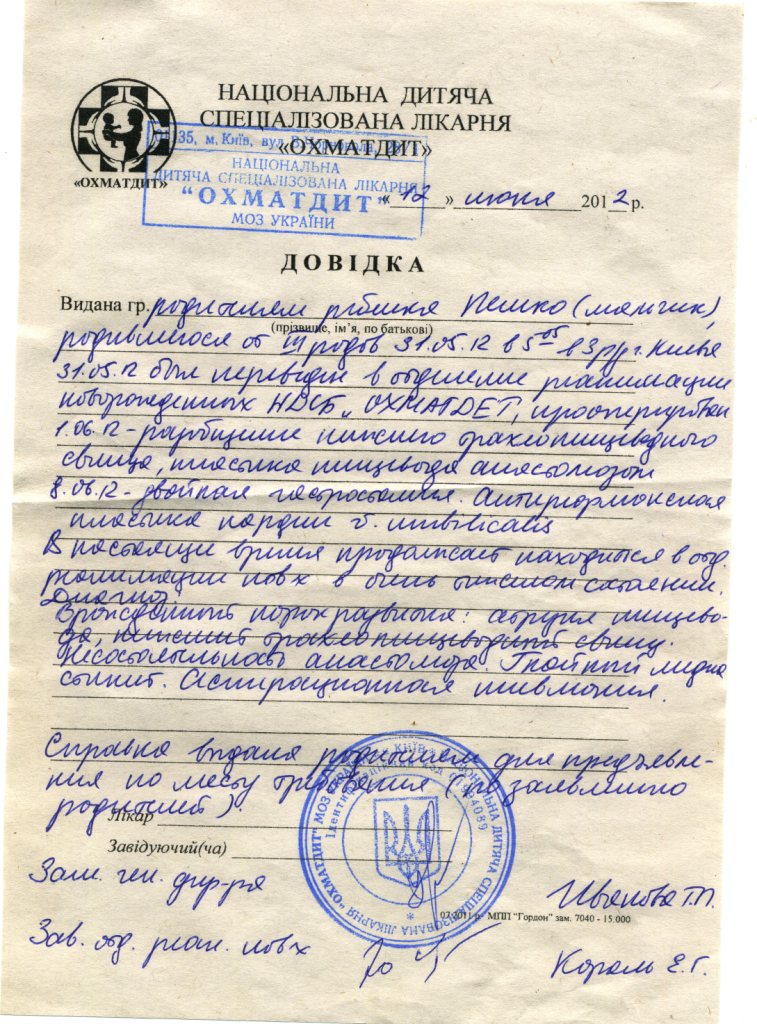 НАЦІОНАЛЬНА ДИТЯЧА
СПЕЦІАЛІЗОВАНА ЛІКАРНЯ
«ОХМАТДИТ»
«ОХМАТДИТ»
35, м. Київ, вул.
НАЦІОНАЛЬНА
ДИТЯЧА СПЕЦІАЛІЗОВАНА ЛІКАРНЯ
“ОХМАТДИТ”
МОЗ УКРАЇНИ
« 12 » июня 2012 р.
ДОВІДКА
Видана гр. родителям ребенка Пешко (мальчик),
(прізвище, ім’я, по батькові)
родившегося от III родов 31.05.12 в 5 05 в 3 р/д г. Киева
31.05.12 был переведен в отделение реанимации
новорожденных НДСБ „ОХМАТДЕТ, прооперирован
1.06.12 - разобщение нижнего трахеопищеводного
свища, пластика пищевода анастомозом
8.06.12 - двойная гастростомия. Антирефлюксная
пластика кардии v. umbilicalis
В настоящее время продолжает находиться в отд.
реанимации новх в тяжелом состоянии.
Диагноз
Врожденный порок развития: атрезия пищево-
да, нижний трахеопищеводный свищ.
Несостоятельность анастомоза. Гнойный медиа
стинит. Аспирационная пневмония.
Справка выдана родителям для предъявле-
ния по месту требования (по заявлению
родителей).
Лікар
Завідуючий(ча)
Зам. ген. дир-ра
07.2011 р. МПП “Гордон” зам. 7040 - 15.000
Зав. отд. реан. новх
Король Е.Г.
МОЗ УКРАЇНИ * м. КИЇВ * НАЦІОНАЛЬНА ДИТЯЧА СПЕЦІАЛІЗОВАНА ЛІКАРНЯ “ОХМАТДИТ”
Ідентифікаційний код